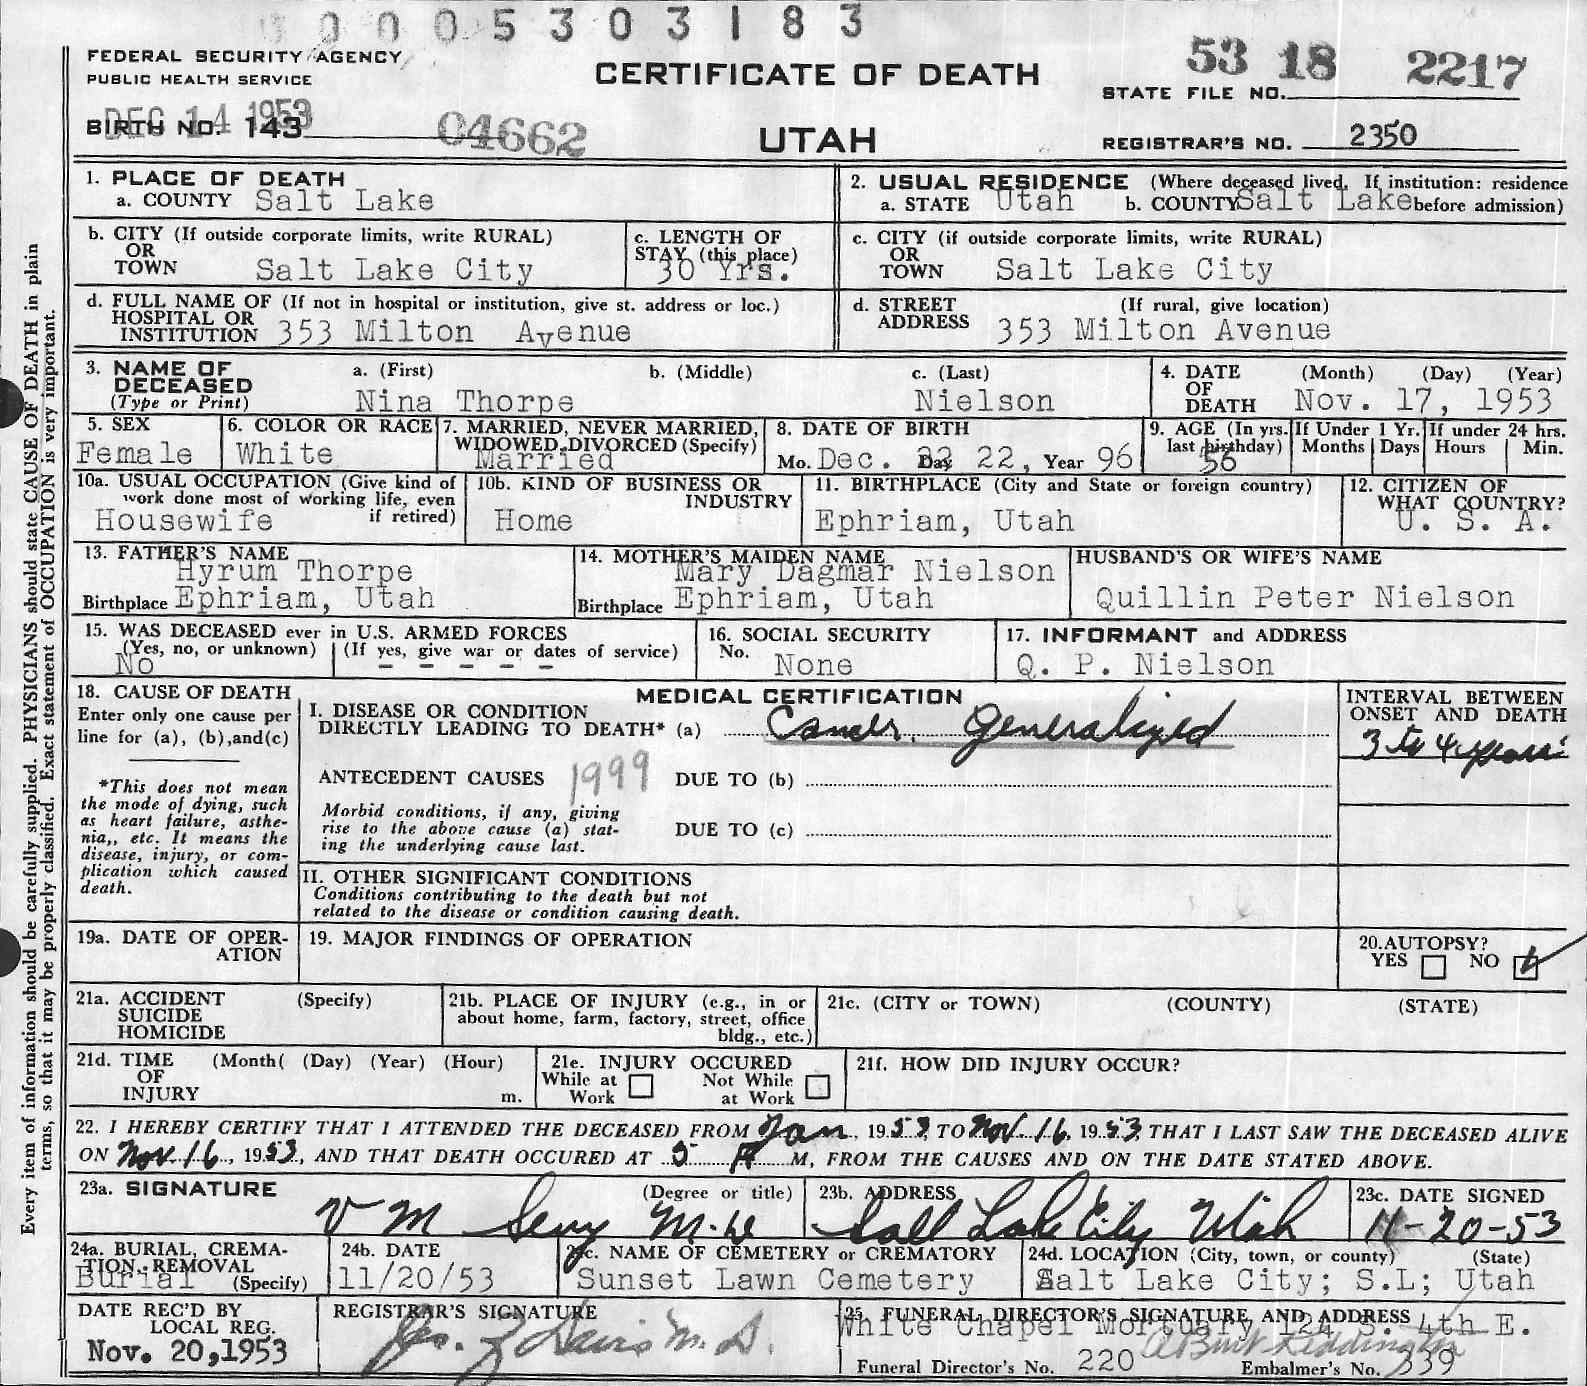 0005303183
FEDERAL SECURITY AGENCY
PUBLIC HEALTH SERVICE
CERTIFICATE OF DEATH
UTAH
53 18 2217
STATE FILE NO.
DEC 14 1953
BIRTH NO. 143
04662
REGISTRAR'S NO. 2350
Every item of information should be carefully supplied. PHYSICIANS should state CAUSE OF DEATH in plain
terms, so that it may be properly classified. Exact statement of OCCUPATION is very important.
1. PLACE OF DEATH
a. COUNTY Salt Lake
2. USUAL RESIDENCE (Where deceased lived. If institution: residence
a. STATE Utah b. COUNTY Salt Lake before admission)
b. CITY (If outside corporate limits, write RURAL)
OR
TOWN Salt Lake City
c. LENGTH OF
STAY (this place)
30 Yrs.
c. CITY (if outside corporate limits, write RURAL)
OR
TOWN Salt Lake City
d. FULL NAME OF (If not in hospital or institution, give st. address or loc.)
HOSPITAL OR
INSTITUTION 353 Milton Avenue
d. STREET (If rural, give location)
ADDRESS 353 Milton Avenue
3. NAME OF a. (First) b. (Middle) c. (Last)
DECEASED
(Type or Print) Nina Thorpe Nielson
4. DATE (Month) (Day) (Year)
OF
DEATH Nov. 17, 1953
5. SEX
Female
6. COLOR OR RACE
White
7. MARRIED, NEVER MARRIED,
WIDOWED, DIVORCED (Specify)
Married
8. DATE OF BIRTH
Mo. Dec. Day 22, Year 96
9. AGE (In yrs. If Under 1 Yr. If under 24 hrs.
last birthday) Months Days Hours Min.
56
10a. USUAL OCCUPATION (Give kind of
work done most of working life, even
if retired)
Housewife
10b. KIND OF BUSINESS OR
INDUSTRY
Home
11. BIRTHPLACE (City and State or foreign country)
Ephriam, Utah
12. CITIZEN OF
WHAT COUNTRY?
U. S. A.
13. FATHER'S NAME
Hyrum Thorpe
Birthplace Ephriam, Utah
14. MOTHER'S MAIDEN NAME
Mary Dagmar Nielson
Birthplace Ephriam, Utah
HUSBAND'S OR WIFE'S NAME
Quillin Peter Nielson
15. WAS DECEASED ever in U.S. ARMED FORCES
(Yes, no, or unknown) (If yes, give war or dates of service)
No - - - - -
16. SOCIAL SECURITY
No. None
17. INFORMANT and ADDRESS
Q. P. Nielson
18. CAUSE OF DEATH
Enter only one cause per
line for (a), (b), and (c)
*This does not mean
the mode of dying, such
as heart failure, asthe-
nia,, etc. It means the
disease, injury, or com-
plication which caused
death.
MEDICAL CERTIFICATION
I. DISEASE OR CONDITION
DIRECTLY LEADING TO DEATH* (a) Cancer, Generalized
ANTECEDENT CAUSES 1999 DUE TO (b)
Morbid conditions, if any, giving
rise to the above cause (a) stat-
ing the underlying cause last.
DUE TO (c)
II. OTHER SIGNIFICANT CONDITIONS
Conditions contributing to the death but not
related to the disease or condition causing death.
INTERVAL BETWEEN
ONSET AND DEATH
3 to 4 years
19a. DATE OF OPER-
ATION
19. MAJOR FINDINGS OF OPERATION
20. AUTOPSY?
YES NO
21a. ACCIDENT (Specify)
SUICIDE
HOMICIDE
21b. PLACE OF INJURY (e.g., in or
about home, farm, factory, street, office
bldg., etc.)
21c. (CITY or TOWN) (COUNTY) (STATE)
21d. TIME (Month( (Day) (Year) (Hour)
OF
INJURY m.
21e. INJURY OCCURED
While at Not While
Work at Work
21f. HOW DID INJURY OCCUR?
22. I HEREBY CERTIFY THAT I ATTENDED THE DECEASED FROM Jan, 1953, TO Nov. 16, 1953, THAT I LAST SAW THE DECEASED ALIVE
ON Nov. 16, 1953, AND THAT DEATH OCCURED AT 5 A M, FROM THE CAUSES AND ON THE DATE STATED ABOVE.
23a. SIGNATURE (Degree or title)
V M Sevy M.D
23b. ADDRESS
Salt Lake City Utah
23c. DATE SIGNED
11-20-53
24a. BURIAL, CREMA-
TION, REMOVAL
Burial (Specify)
24b. DATE
11/20/53
24c. NAME OF CEMETERY or CREMATORY
Sunset Lawn Cemetery
24d. LOCATION (City, town, or county) (State)
Salt Lake City; S.L; Utah
DATE REC'D BY
LOCAL REG.
Nov. 20, 1953
REGISTRAR'S SIGNATURE
Davis M.D.
25. FUNERAL DIRECTOR'S SIGNATURE AND ADDRESS
White Chapel Mortuary 124 S. 4th E.
Funeral Director's No. 220
Embalmer's No. 339